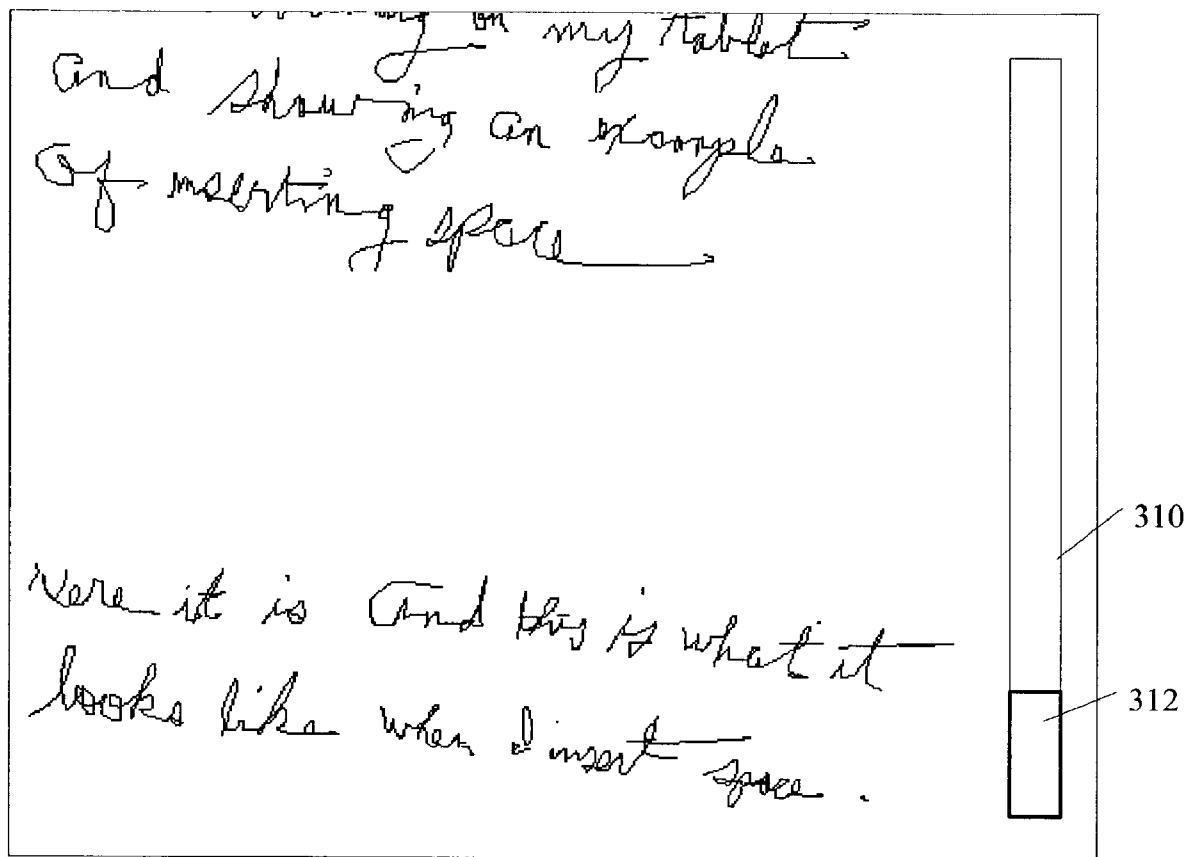 on my tablet
and showing an example
of inserting space
Here it is and this is what it
looks like when I insert space.
310
312